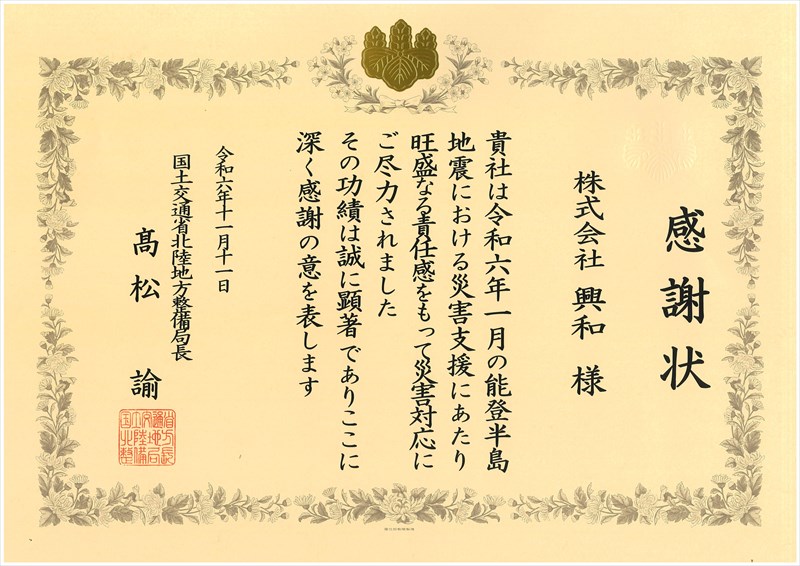 感謝状
株式会社 興和 様
貴社は令和六年一月の能登半島
地震における災害支援にあたり
旺盛なる責任感をもって災害対応に
ご尽力されました
その功績は誠に顕著でありここに
深く感謝の意を表します
令和六年十一月十一日
国土交通省北陸地方整備局長
髙松 諭